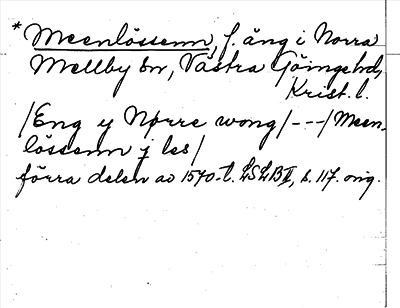 * Meenlössenn, f. äng i Norra
Mellby sn, Västra Göinge hd,
Krist. l.
/Eng y Nørre wong/---/Meen-
lössenn j les/
förra delen av 1570-t. LSLB II, s. 117. orig.